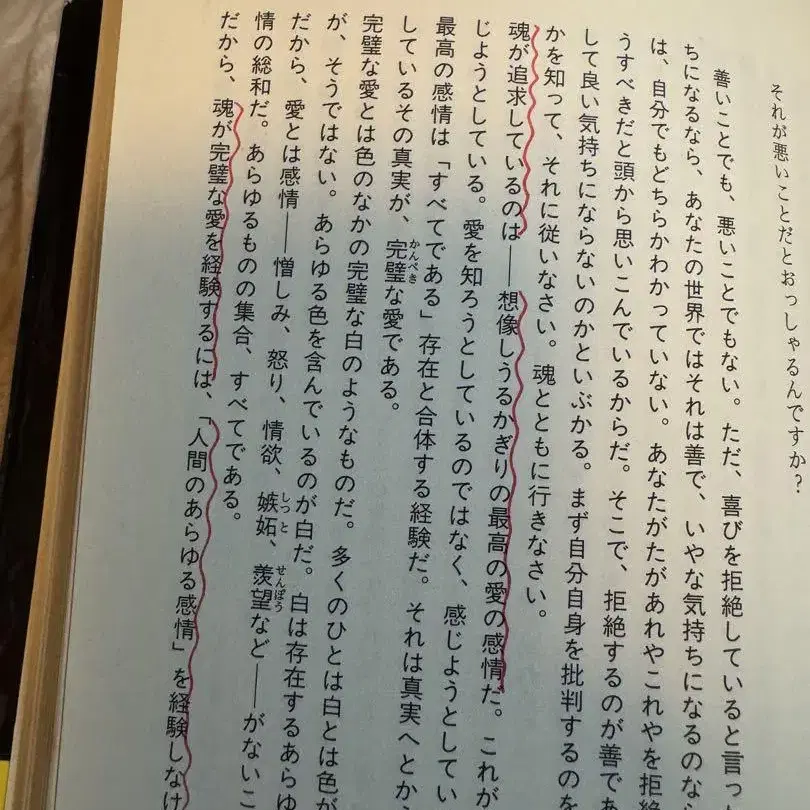 それが悪いことだとおっしゃるんですか？
善いことでも、悪いことでもない。ただ、喜びを拒絶していると言っ
ちになるなら、あなたの世界ではそれは善で、いやな気持ちになるのなら
は、自分でもどちらかわかっていない。あなたがたがあれやこれやを拒絶
うすべきだと頭から思いこんでいるからだ。そこで、拒絶するのが善であ
して良い気持ちにならないのかといぶかる。まず自分自身を批判するのを
かを知って、それに従いなさい。魂とともに行きなさい。
魂が追求しているのは――想像しうるかぎりの最高の愛の感情だ。これが
じようとしている。愛を知ろうとしているのではなく、感じようとしてい
最高の感情は「すべてである」存在と合体する経験だ。それは真実へとか
しているその真実が、完璧な愛である。
かんぺき
完璧な愛とは色のなかの完璧な白のようなものだ。多くのひとは白とは色が
が、そうではない。あらゆる色を含んでいるのが白だ。白は存在するあらゆ
だから、愛とは感情――憎しみ、怒り、情欲、嫉妬、羨望など――がないこ
しっと
せんぼう
情の総和だ。あらゆるものの集合、すべてである。
だから、魂が完璧な愛を経験するには、「人間のあらゆる感情」を経験しなけ